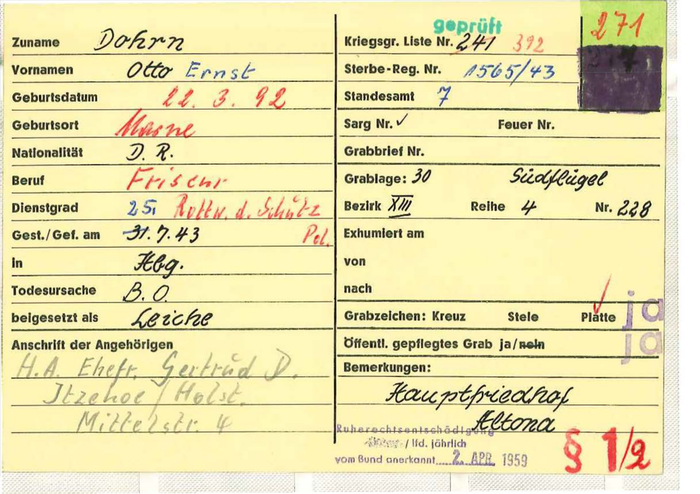 Zuname Dohrn
Vornamen Otto Ernst
Geburtsdatum 22. 3. 92
Geburtsort Marne
Nationalität D. R.
Beruf Friseur
Dienstgrad Rottw. d. Schutz Pol.
Gest./Gef. am 31. 7. 43
in Hbg.
Todesursache B. O.
beigesetzt als Leiche
Anschrift der Angehörigen
H.A. Ehefr. Gertrud D.
Itzehoe / Holst.
Mittelstr. 4
geprüft
271
Kriegsgr. Liste Nr. 241 392
Sterbe-Reg. Nr. 1565/43
Standesamt 7
Sarg Nr. ✓ Feuer Nr.
Grabbrief Nr.
Grablage: 30 Südflügel
Bezirk XIII Reihe 4 Nr. 228
Exhumiert am
von
nach
Grabzeichen: Kreuz Stele Platte ja
Öffentl. gepflegtes Grab ja/nein ja
Bemerkungen:
Hauptfriedhof
Altona
Ruherechtsentschädigung
/ lfd. jährlich
vom Bund anerkannt 2. APR. 1959
§ 1/2